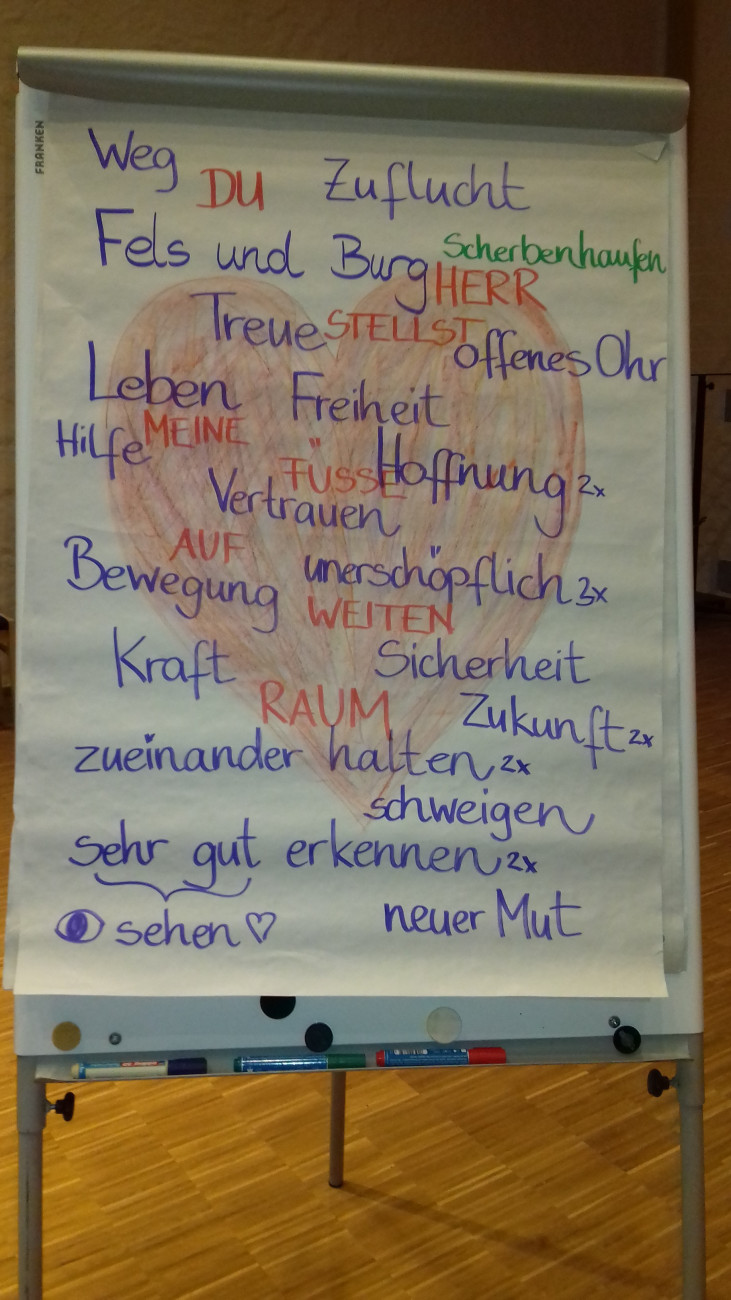 FRANKEN
Weg DU Zuflucht
Fels und Burg Scherbenhaufen
HERR
Treue STELLST offenes Ohr
Leben Freiheit
Hilfe MEINE
FÜSSE Hoffnung 2x
Vertrauen
AUF
Bewegung unerschöpflich 3x
WEITEN
Kraft Sicherheit
RAUM Zukunft 2x
zueinander halten 2x
schweigen
sehr gut erkennen 2x
sehen neuer Mut